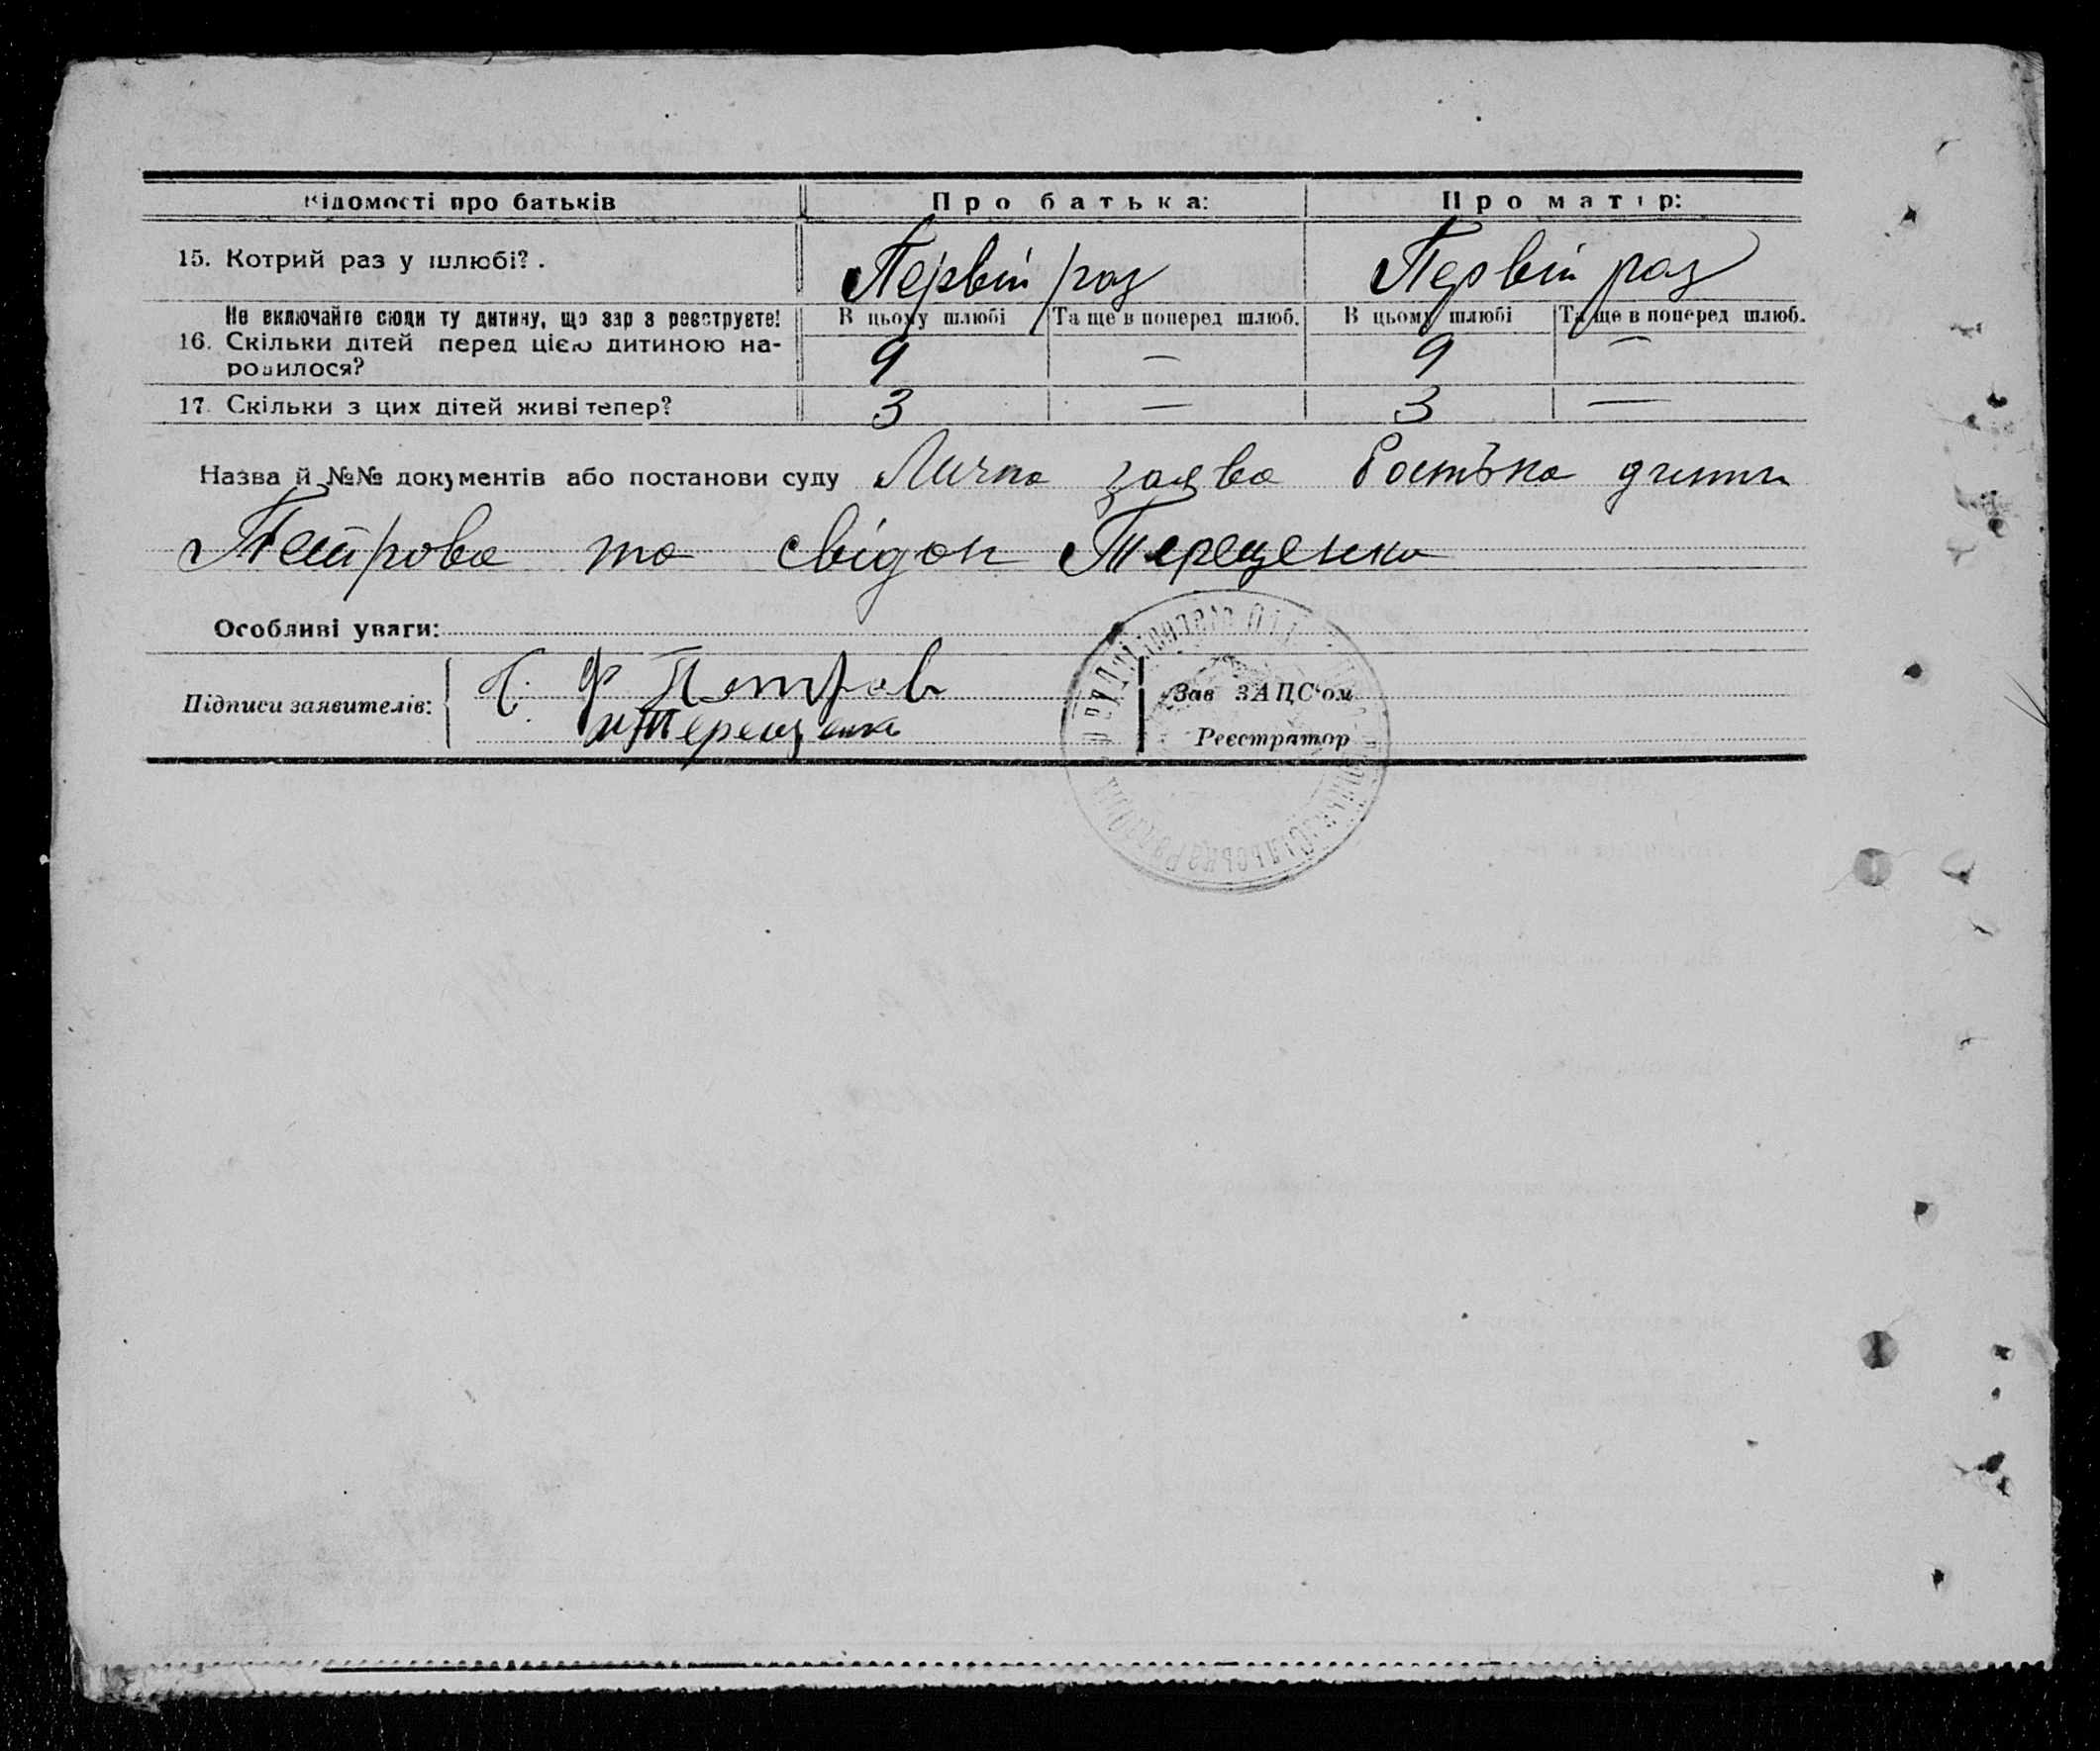 Відомості про батьків Про батька: Про матір:
15. Котрий раз у шлюбі? . Первій раз Первій раз
Не включайте сюди ту дитину, що зар з реєструєте! В цьому шлюбі Та ще в поперед шлюб. В цьому шлюбі Та ще в поперед шлюб.
16. Скільки дітей перед цією дитиною на-
родилося? 9 — 9 —
17. Скільки з цих дітей живі тепер? 3 — 3 —
Назва й №№ документів або постанови суду Лична заява батька
Петрова та свідок Терещенко
Особливі уваги:
Підписи заявителів: Ф Петров Зав ЗАПС'ом
Терещенко Реєстратор
Сільська рада